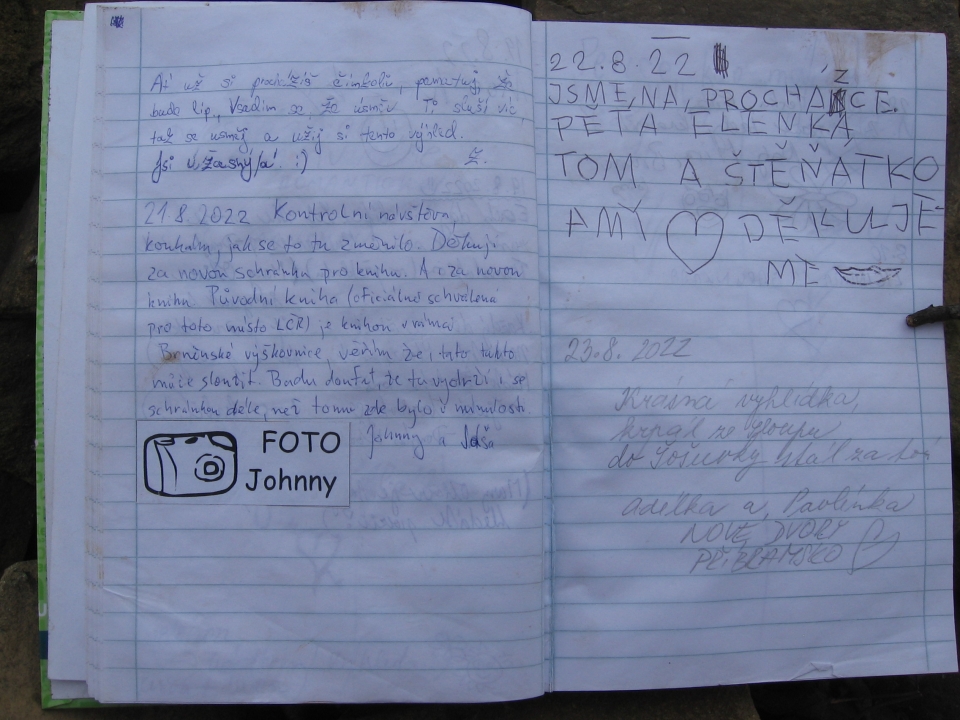 Ať už si procházíš čímkoliv, pamatuj, že
bude líp. Vsadím se, že úsměv Ti sluší víc,
tak se usměj a užij si tento výhled.
Jsi úžasný/á! :)
Ž.
21.8.2022 Kontrolní návštěva,
koukám, jak se to tu změnilo. Děkuji
za novou schránku pro knihu. A i za novou
knihu. Původní kniha (oficiálně schválená
pro toto místo LČR) je knihou v rámci
Brněnské výškovnice, věřím že, tato takto
může sloužit. Budu doufat, že tu vydrží i se
schránkou déle, než tomu zde bylo v minulosti
Johnny a
FOTO
Johnny
22.8.22
JSME, NA, PROCHÁZCE,
PĚŤA ELENKÁ
TOM A ŠTĚŇATKO
AMY DĚKUJE
ME
23.8.2022
Krásná vyhlídka,
krpál ze Sloupu
do Šošůvky stál za to!
Adélka a Pavlínka
NOVÉ DVORY
PŘÍBRAMSKO